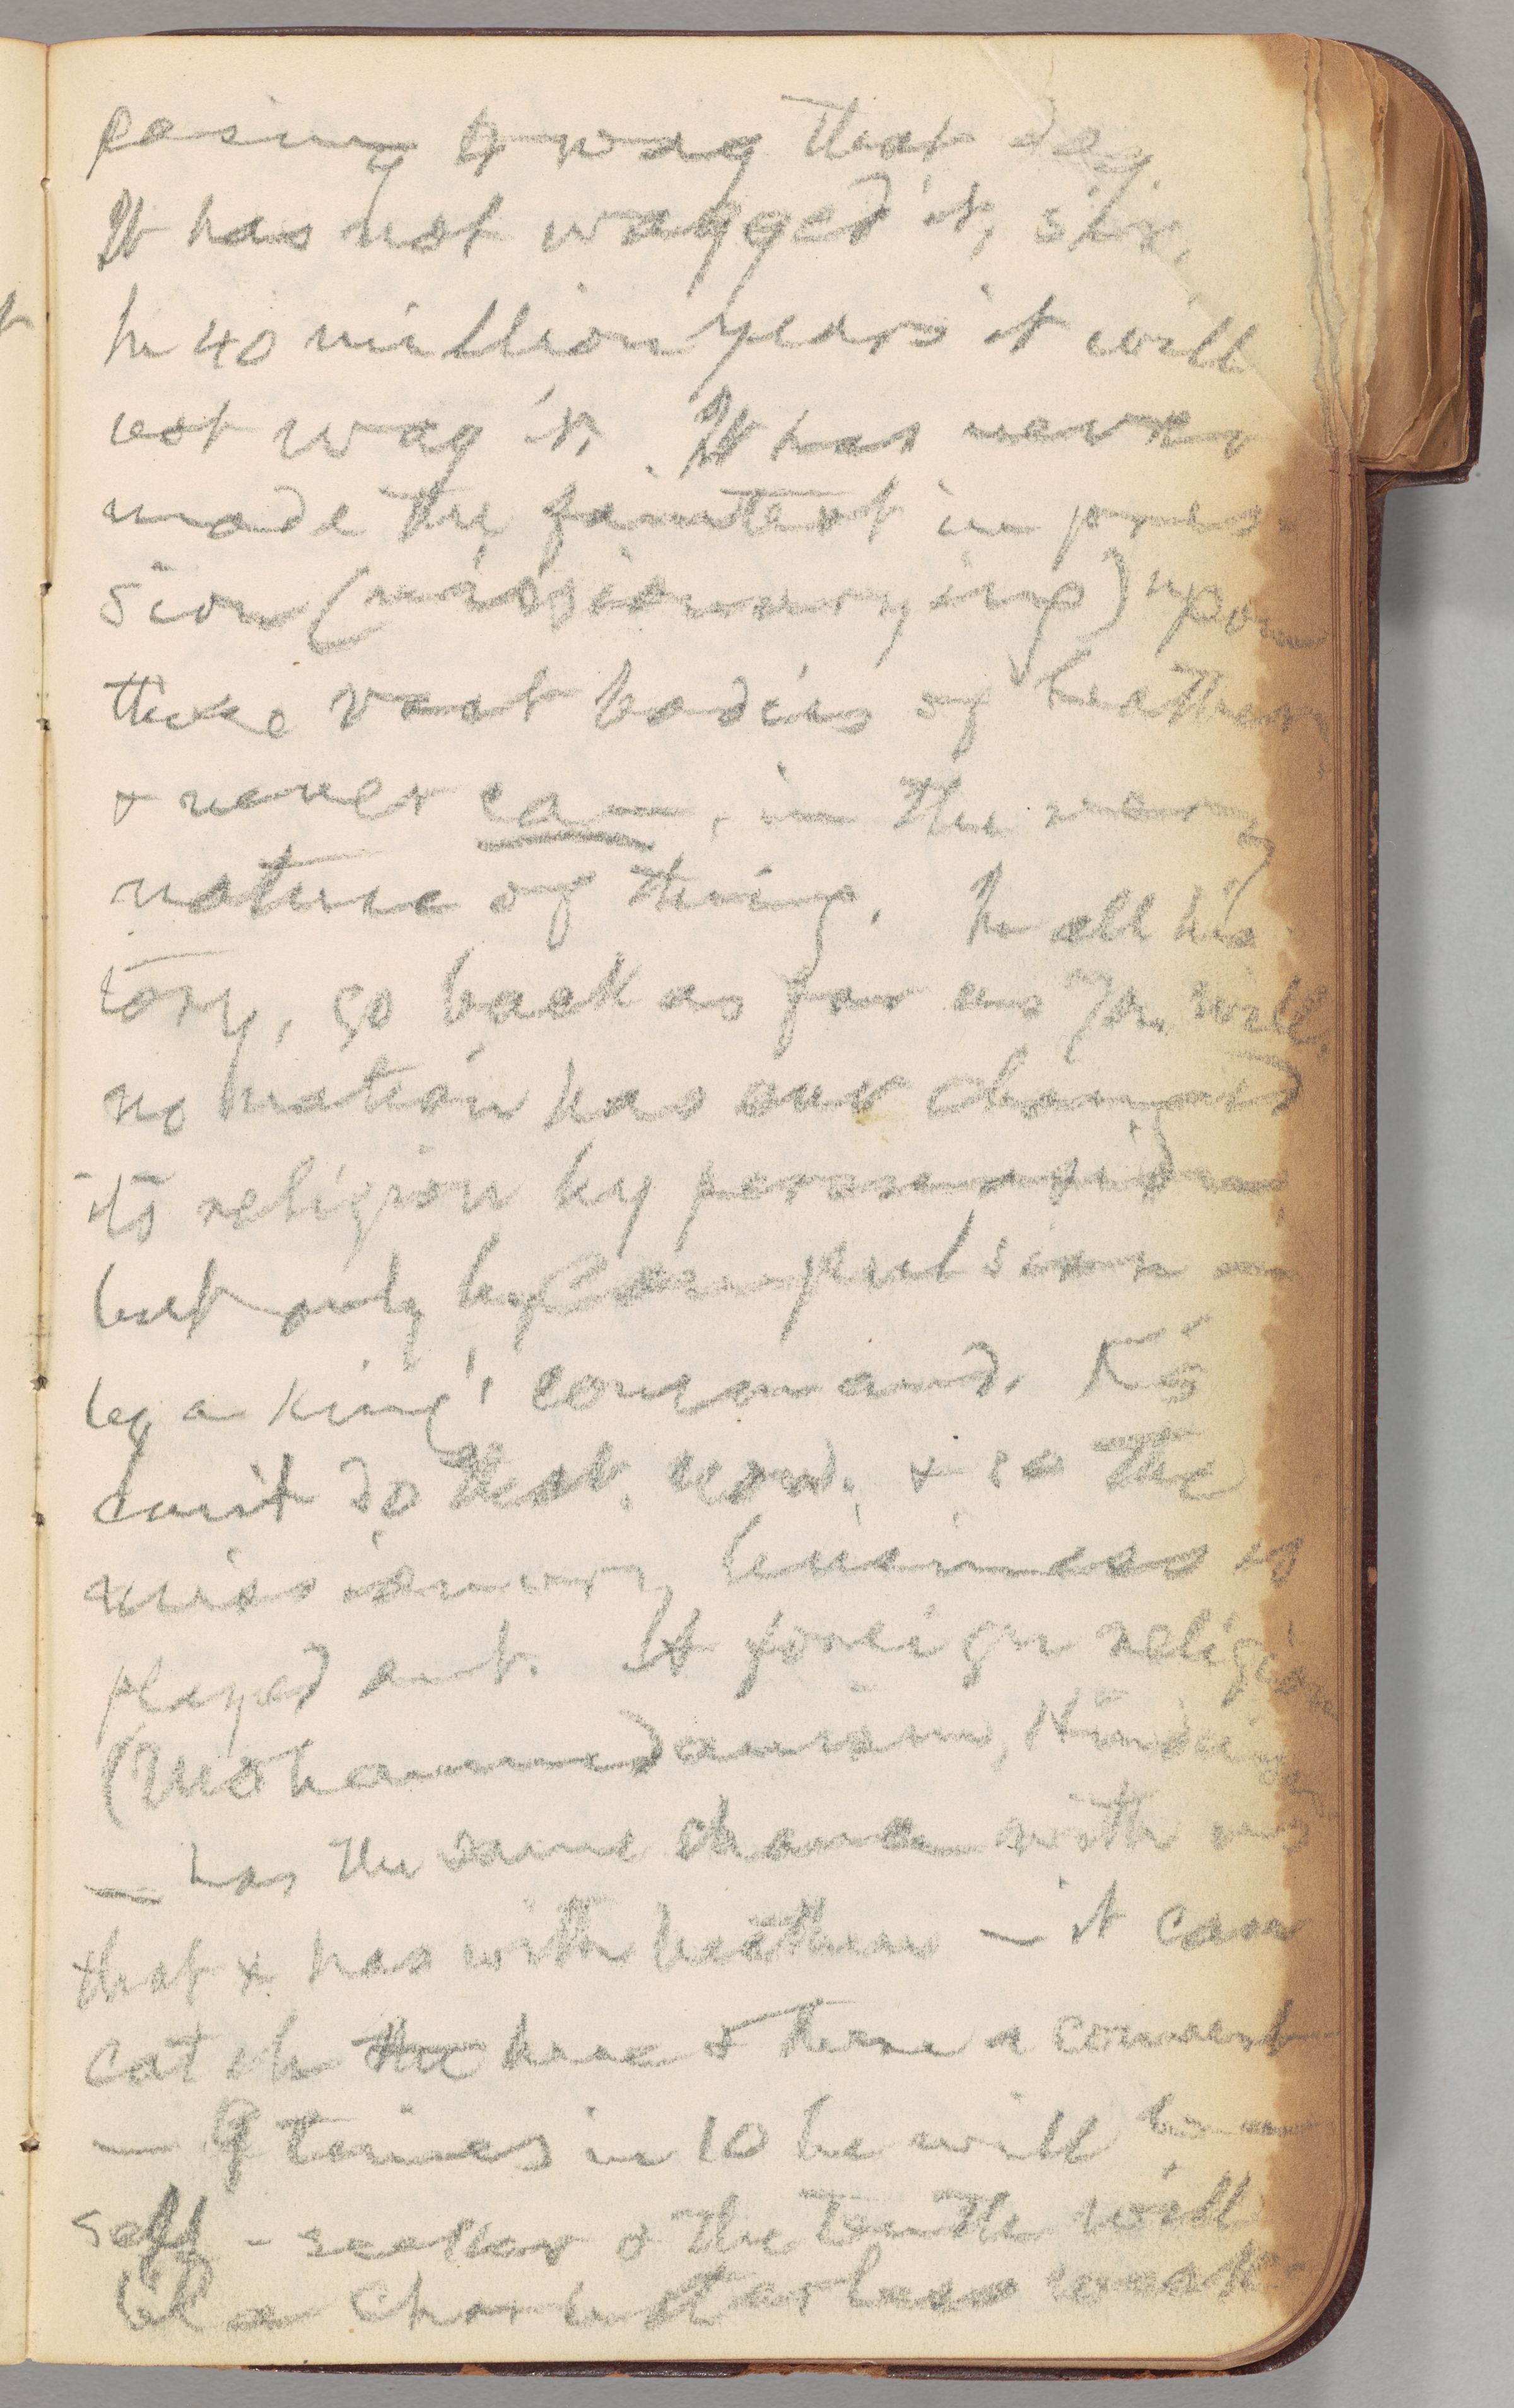 posing to wag that dog.
It has not wagged it, sir,
In 40 million years it will
not wag it. It has never
made the faintest impres-
sion (missionarying) upon
those vast bodies of heathen
& never can, in the very
nature of things. In all his-
tory, go back as far as you will,
no nation has ever changed
its religion by persuasion,
but only by compulsion —
by a king's command. Ks
can't do that, now. & so the
missionary business is
played out. A foreign religion
(Mohammedanism, Hindu
— has the same chance with us
that x has with heathens — it can
catch the here & there a convert
— 9 times in 10 he will be a
self-seeker & the tenth will
be a characterless weak-